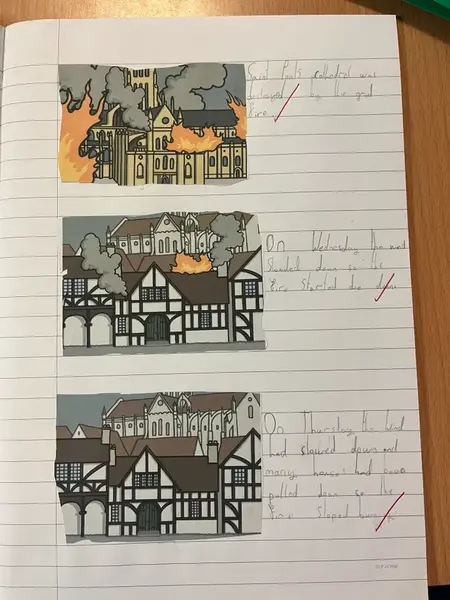 Saint Pauls cathedral was
destroyed by the great
fire.
On Wednesday the wind
slowded down so the
fire started die down
On Thursday the wind
had slowed down and
many houses had been
pulled down so the
fire stoped